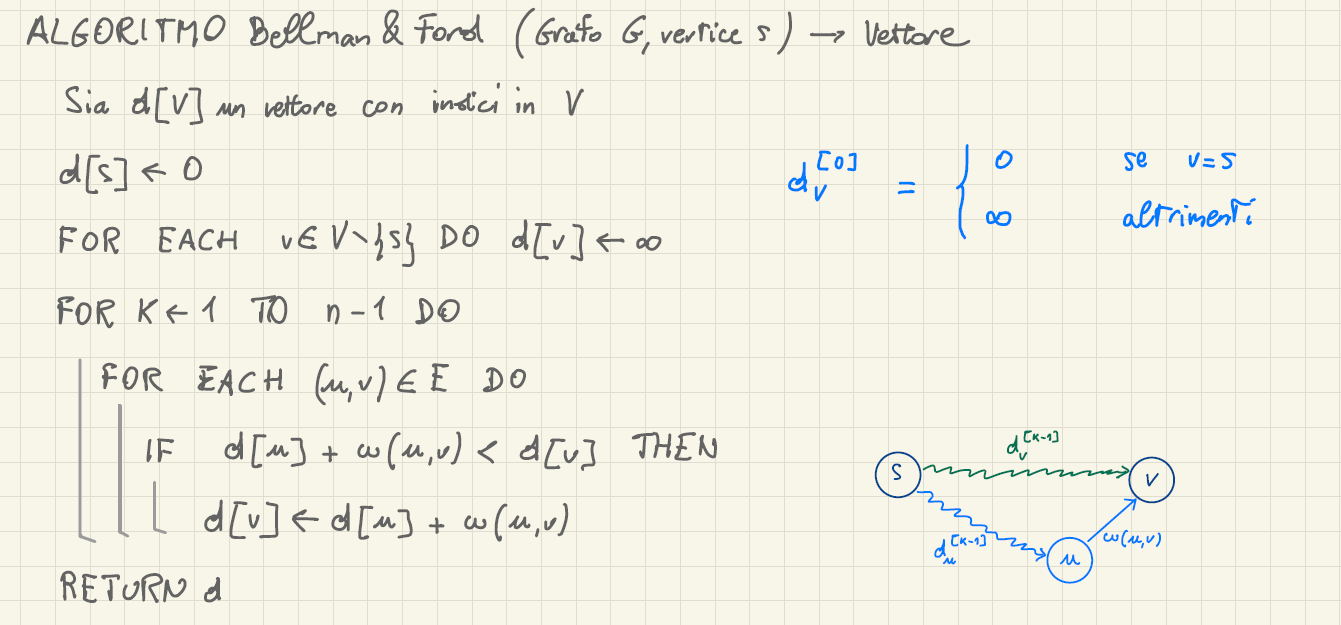 ALGORITMO Bellman & Ford (Grafo G, vertice s) → Vettore
Sia d[V] un vettore con indici in V
d[s] ← 0
FOR EACH v ∈ V \ {s} DO d[v] ← ∞
FOR K ← 1 TO n - 1 DO
FOR EACH (u,v) ∈ E DO
IF d[u] + ω(u,v) < d[v] THEN
d[v] ← d[u] + ω(u,v)
RETURN d
d_v^[0] = { 0 se v=s
∞ altrimenti
d_v^[K-1]
s
v
d_u^[K-1]
ω(u,v)
u